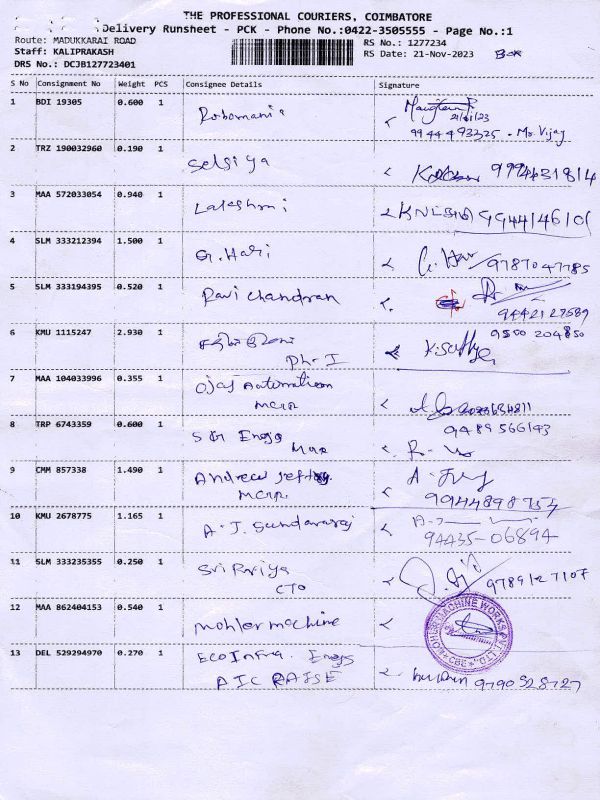 THE PROFESSIONAL COURIERS, COIMBATORE
Delivery Runsheet - PCK - Phone No.:0422-3505555 - Page No.:1
Route: MADUKKARAI ROAD
Staff: KALIPRAKASH
DRS No.: DCJB127723401
RS No.: 1277234
RS Date: 21-Nov-2023
S No Consignment No Weight PCS Consignee Details Signature
1 BDI 19305 0.600 1 Robomania
21/11/23
9944493225 - Mr. Vijay
2 TRZ 190032960 0.190 1 Selsiya
3 MAA 572033054 0.940 1 Lakshmi
4 SLM 333212394 1.500 1 G. Hari 9787047785
5 SLM 333194395 0.520 1 Ravi chandran
9442127589
6 KMU 1115247 2.930 1 9500 204850
Ph-I K.Sathya
7 MAA 104033996 0.355 1 Ojas Automation
8 TRP 6743359 0.600 1 9489566143
9 CMM 857338 1.490 1 Andrew
9944898754
10 KMU 2678775 1.165 1 A.J. Sundararaj 94435-06894
11 SLM 333235355 0.250 1 Sri Priya 9789127107
CTO
12 MAA 862404153 0.540 1 mohler machine
MOHLER MACHINE WORKS PVT. LTD. CBE
13 DEL 529294970 0.270 1 Eco Infra. Engs
9790528727